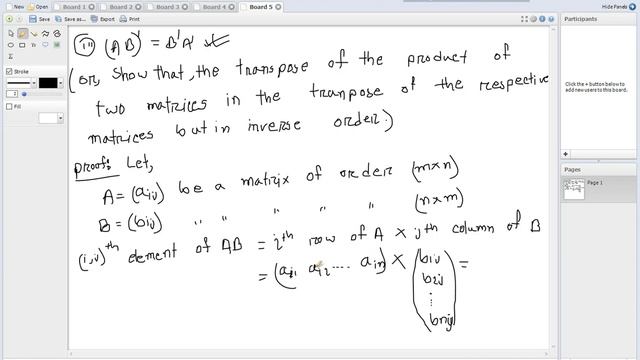 Board 1 Board 2 Board 3 Board 4 Board 5 Hide Panels
Open Save Save as... Export Undo Redo
Participants
Stroke
2
Fill
Click the + button below to add new users to this board.
Pages
Page 1
(AB)' = B'A'
(or, Show that, the transpose of the product of
two matrices in the tranpose of the respective
matrices but in inverse order.)
Proof: Let,
A = (aij) be a matrix of order (m×n)
B = (bij) " " " " " (n×m)
(i,j)th element of AB = ith row of A × jth column of B
= (ai1 ai2 .... ain) × (b1j b2j ⋮ bnj) =